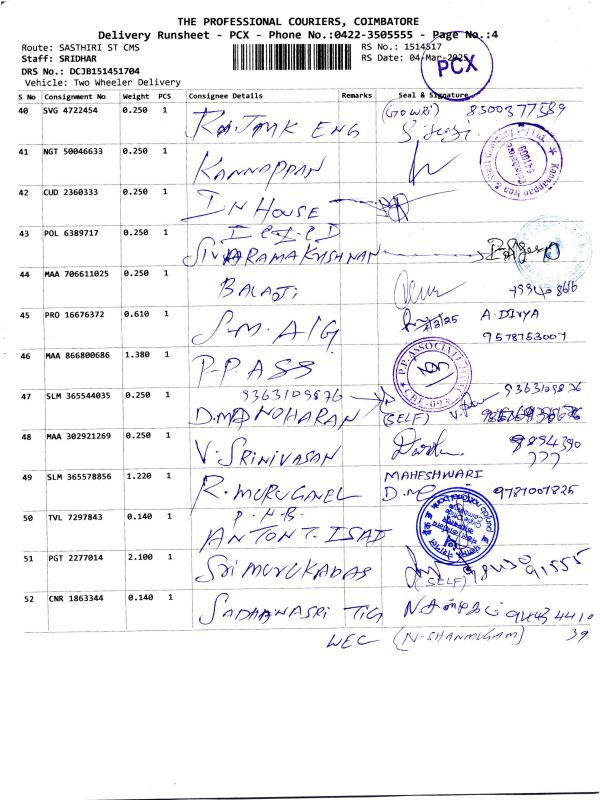 THE PROFESSIONAL COURIERS, COIMBATORE
Delivery Runsheet - PCX - Phone No.:0422-3505555 - Page No.:4
Route: SASTHIRI ST CMS RS No.: 1514517
Staff: SRIDHAR RS Date: 04-Mar-2025
PCX
DRS No.: DCJB151451704
Vehicle: Two Wheeler Delivery
S No Consignment No Weight PCS Consignee Details Remarks Seal & Signature
40 SVG 4722454 0.250 1 ENG (GOWRI) 8300377589
41 NGT 50046633 0.250 1 KANNAPPAN
42 CUD 2360333 0.250 1 IN HOUSE
43 POL 6389717 0.250 1
SIVARAMAKRISHNAN
44 MAA 706611025 0.250 1 BALAJI
45 PRO 16676372 0.610 1 S.M. A/G A-DIVYA
9578753007
46 MAA 866800686 1.380 1 P-PASS
P.P.ASSOCIATE
47 SLM 365544035 0.250 1 9363109876 9363109876
D.MANOHARAN (SELF)
48 MAA 302921269 0.250 1 V.SRINIVASAN 8894390
777
49 SLM 365578856 1.220 1 R.MURUGANEL MAHESHWARI
D.M 9787007825
50 TVL 7297843 0.140 1 P.N.B.
ANTONY.ISAI
51 PGT 2277014 2.100 1 SRI MURUKADAS 98430 91555
(SELF)
52 CNR 1863344 0.140 1 TIG
WEC (N-SHANMUGAM) 39